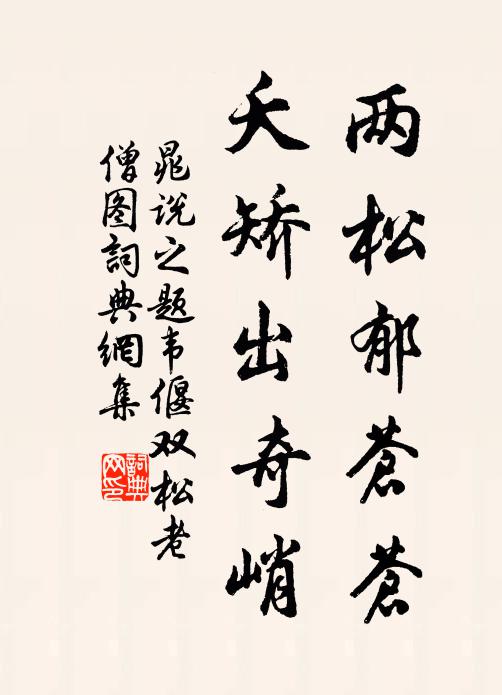 两松郁苍苍
夭矫出奇峭
晁说之题韦偃双松老
僧图词典網集
詞典網印